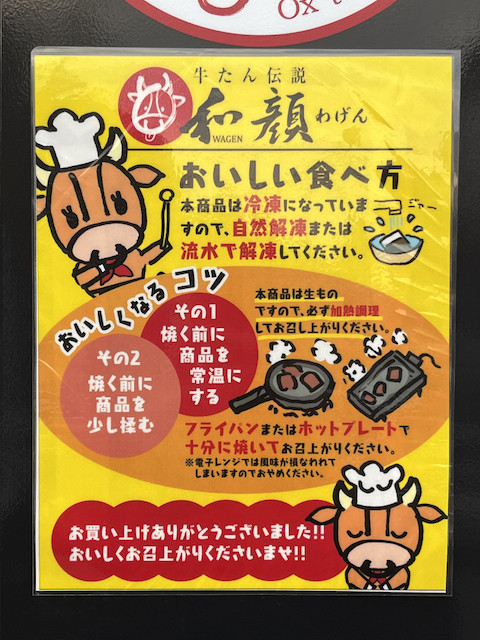 Ox t
牛たん伝説
和顔 わげん
WAGEN
おいしい食べ方
本商品は冷凍になっていま
すので、自然解凍または
流水で解凍してください。
おいしくなるコツ
その1
焼く前に
商品を
常温に
する
その2
焼く前に
商品を
少し揉む
本商品は生もの
ですので、必ず加熱調理
してお召し上がりください。
フライパンまたはホットプレートで
十分に焼いてお召上がりください。
※電子レンジでは風味が損なわれて
しまいますのでおやめください。
お買い上げありがとうございました!!
おいしくお召上がりくださいませ!!